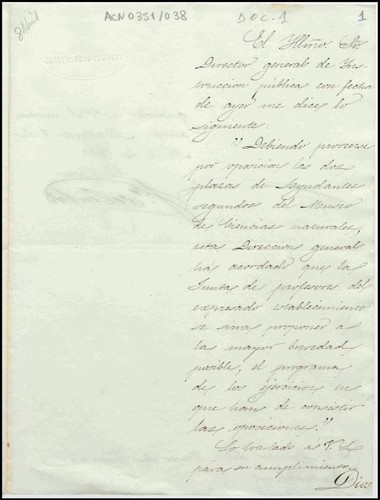 ACN0351/038
DOC. 1
1
El Yllmo Sr.
Director general de Ins-
truccion pública con fecha
de ayer me dice lo
siguiente:
"Debiendo proveerse
por oposicion las dos
plazas de Ayudantes
segundos del Museo
de Ciencias naturales,
esta Direccion general
há acordado que la
Junta de profesores del
expresado establecimiento
se sirva proponer a
la mayor brevedad
posible, el programa
de los ejercicios en
que han de consistir
las oposiciones."
Lo traslado á V. S.
para su cumplimiento.
Dios